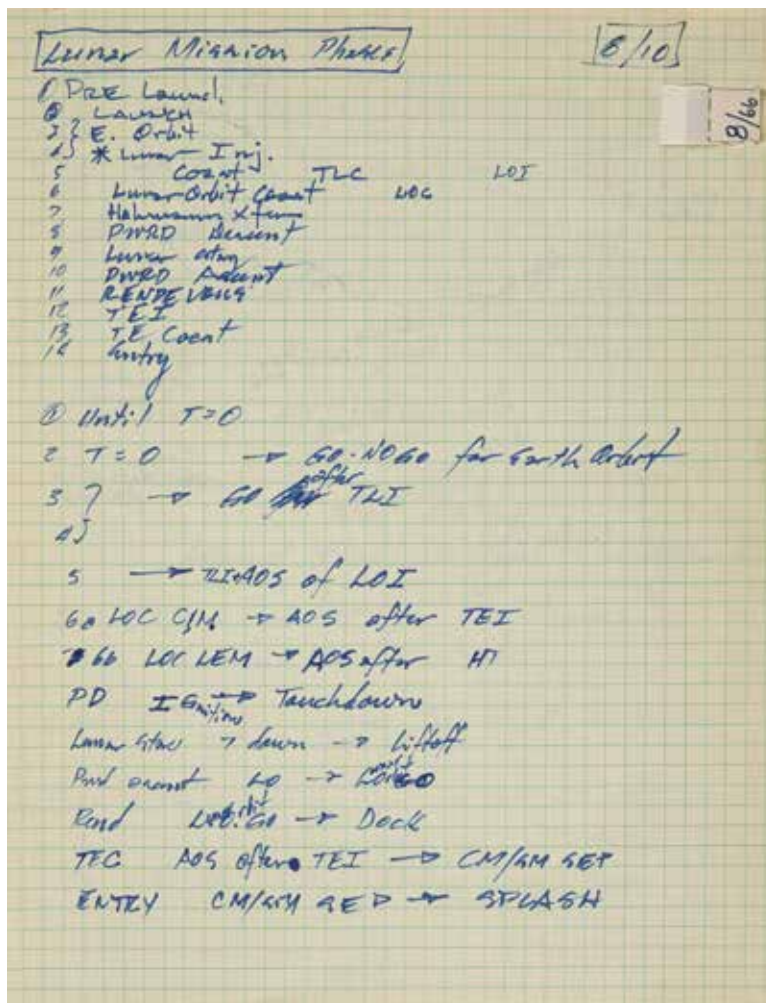 Lunar Mission Phases 8/10
8/66
1 PRE Launch
2 LAUNCH
3 } E. Orbit
4 } * Lunar Inj.
5 Coast TLC LOI
6 Lunar Orbit Coast LOC
7 Hohmann Xfer
8 PWRD Descent
9 Lunar stay
10 PWRD Ascent
11 RENDEVOUS
12 TEI
13 TE Coast
14 Entry
① Until T=0
2 T=0 → GO-NOGO for Earth Orbit
3 } → GO after TLI
4 }
5 → TLI→AOS of LOI
6a LOC C/M → AOS after TEI
6b LOC LEM → AOS after HT
PD IGnition → Touchdown
Lunar Stay → down → Liftoff
Pwrd ascent LO → orbit GO
Rend orbit GO → Dock
TEC AOS after TEI → CM/SM SEP
ENTRY CM/SM SEP → SPLASH